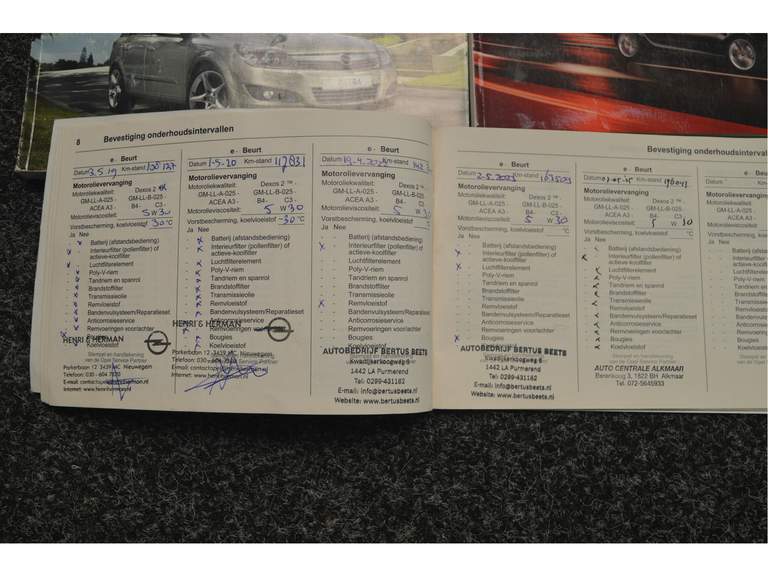 8 Bevestiging onderhoudsintervallen
e - Beurt
Datum 3.5.19 Km-stand
Motorolievervanging
Motoroliekwaliteit: Dexos 2
GM-LL-A-025 - GM-LL-B-025 -
ACEA A3 - B4 - C3 -
Motorolieviscositeit: 5W30
Vorstbescherming, koelvloeistof -30 °C
Ja Nee
Batterij (afstandsbediening)
Interieurfilter (pollenfilter) of
actieve-koolfilter
Luchtfilterelement
Poly-V-riem
Tandriem en spanrol
Brandstoffilter
Transmissieolie
Remvloeistof
Bandenvulsysteem/Reparatieset
Anticorrosieservice
Remvoeringen voor/achter
Bougies
Koelvloeistof
HENRI & HERMAN
Stempel en handtekening
van de Opel Service Partner
Parkerbaan 12 3439 MC Nieuwegein
Telefoon: 030 - 604
E-mail: contact
Internet: www.henriherman.nl
e - Beurt
Datum 1-5.20 Km-stand 117831
Motorolievervanging
Motoroliekwaliteit: Dexos 2 ™ -
GM-LL-A-025 - GM-LL-B-025 -
ACEA A3 - B4 - C3 -
Motorolieviscositeit: 5 W30
Vorstbescherming, koelvloeistof -30 °C
Ja Nee
Batterij (afstandsbediening)
Interieurfilter (pollenfilter) of
actieve-koolfilter
Luchtfilterelement
Poly-V-riem
Tandriem en spanrol
Brandstoffilter
Transmissieolie
Remvloeistof
Bandenvulsysteem/Reparatieset
Anticorrosieservice
Remvoeringen voor/achter
Bougies
Koelvloeistof
HENRI & HERMAN
Parkerbaan 12 3439 MC Nieuwegein
Telefoon: 030
E-mail: contact
Internet: www.henriherman.nl
e - Beurt
Datum Km-stand
Motorolievervanging
Motoroliekwaliteit: Dexos 2 ™ -
GM-LL-A-025 - GM-LL-B-025 -
ACEA A3 - B4 - C3 -
Motorolieviscositeit: 5 W 30
Vorstbescherming, koelvloeistof °C
Ja Nee
Batterij (afstandsbediening)
Interieurfilter (pollenfilter) of
actieve-koolfilter
Luchtfilterelement
Poly-V-riem
Tandriem en spanrol
Brandstoffilter
Transmissieolie
Remvloeistof
Bandenvulsysteem/Reparatieset
Anticorrosieservice
Remvoeringen voor/achter
Bougies
Koelvloeistof
AUTOBEDRIJF BERTUS BEETS
Kwadijkerkoogweg 6
1442 LA Purmerend
Tel: 0299-431162
E-mail: info@bertusbeets.nl
Website: www.bertusbeets.nl
Bevestiging onderhoudsinterval
e - Beurt
Datum 2-5-2023 Km-stand
Motorolievervanging
Motoroliekwaliteit: Dexos 2 ™ -
GM-LL-A-025 - GM-LL-B-025 -
ACEA A3 - B4 - C3 -
Motorolieviscositeit: 5 W 30
Vorstbescherming, koelvloeistof °C
Ja Nee
Batterij (afstandsbediening)
Interieurfilter (pollenfilter) of
actieve-koolfilter
Luchtfilterelement
Poly-V-riem
Tandriem en spanrol
Brandstoffilter
Transmissieolie
Remvloeistof
Bandenvulsysteem/Reparatieset
Anticorrosieservice
Remvoeringen voor/achter
Bougies
Koelvloeistof
AUTOBEDRIJF BERTUS BEETS
Kwadijkerkoogweg 6
1442 LA Purmerend
Tel: 0299-431162
E-mail: info@bertusbeets.nl
Website: www.bertusbeets.nl
e - Beurt
Datum Km-stand
Motorolievervanging
Motoroliekwaliteit: Dexos 2 ™ -
GM-LL-A-025 - GM-LL-B-025 -
ACEA A3 - B4 - C3 -
Motorolieviscositeit: 5 W 30
Vorstbescherming, koelvloeistof °C
Ja Nee
Batterij (afstandsbediening)
Interieurfilter (pollenfilter) of
actieve-koolfilter
Luchtfilterelement
Poly-V-riem
Tandriem en spanrol
Brandstoffilter
Transmissieolie
Remvloeistof
Bandenvulsysteem/Reparatieset
Anticorrosieservice
Remvoeringen voor/achter
Bougies
Koelvloeistof
Stempel en handtekening
van de Opel Service Partner
AUTO CENTRALE ALKMAAR
Berenkoog 3, 1822 BH Alkmaar
Tel. 072-5645933
Datum
Motorolie
Motoroliekw
GM-LL-A
ACEA
Motorolievis
Vorstbesche
Ja Nee